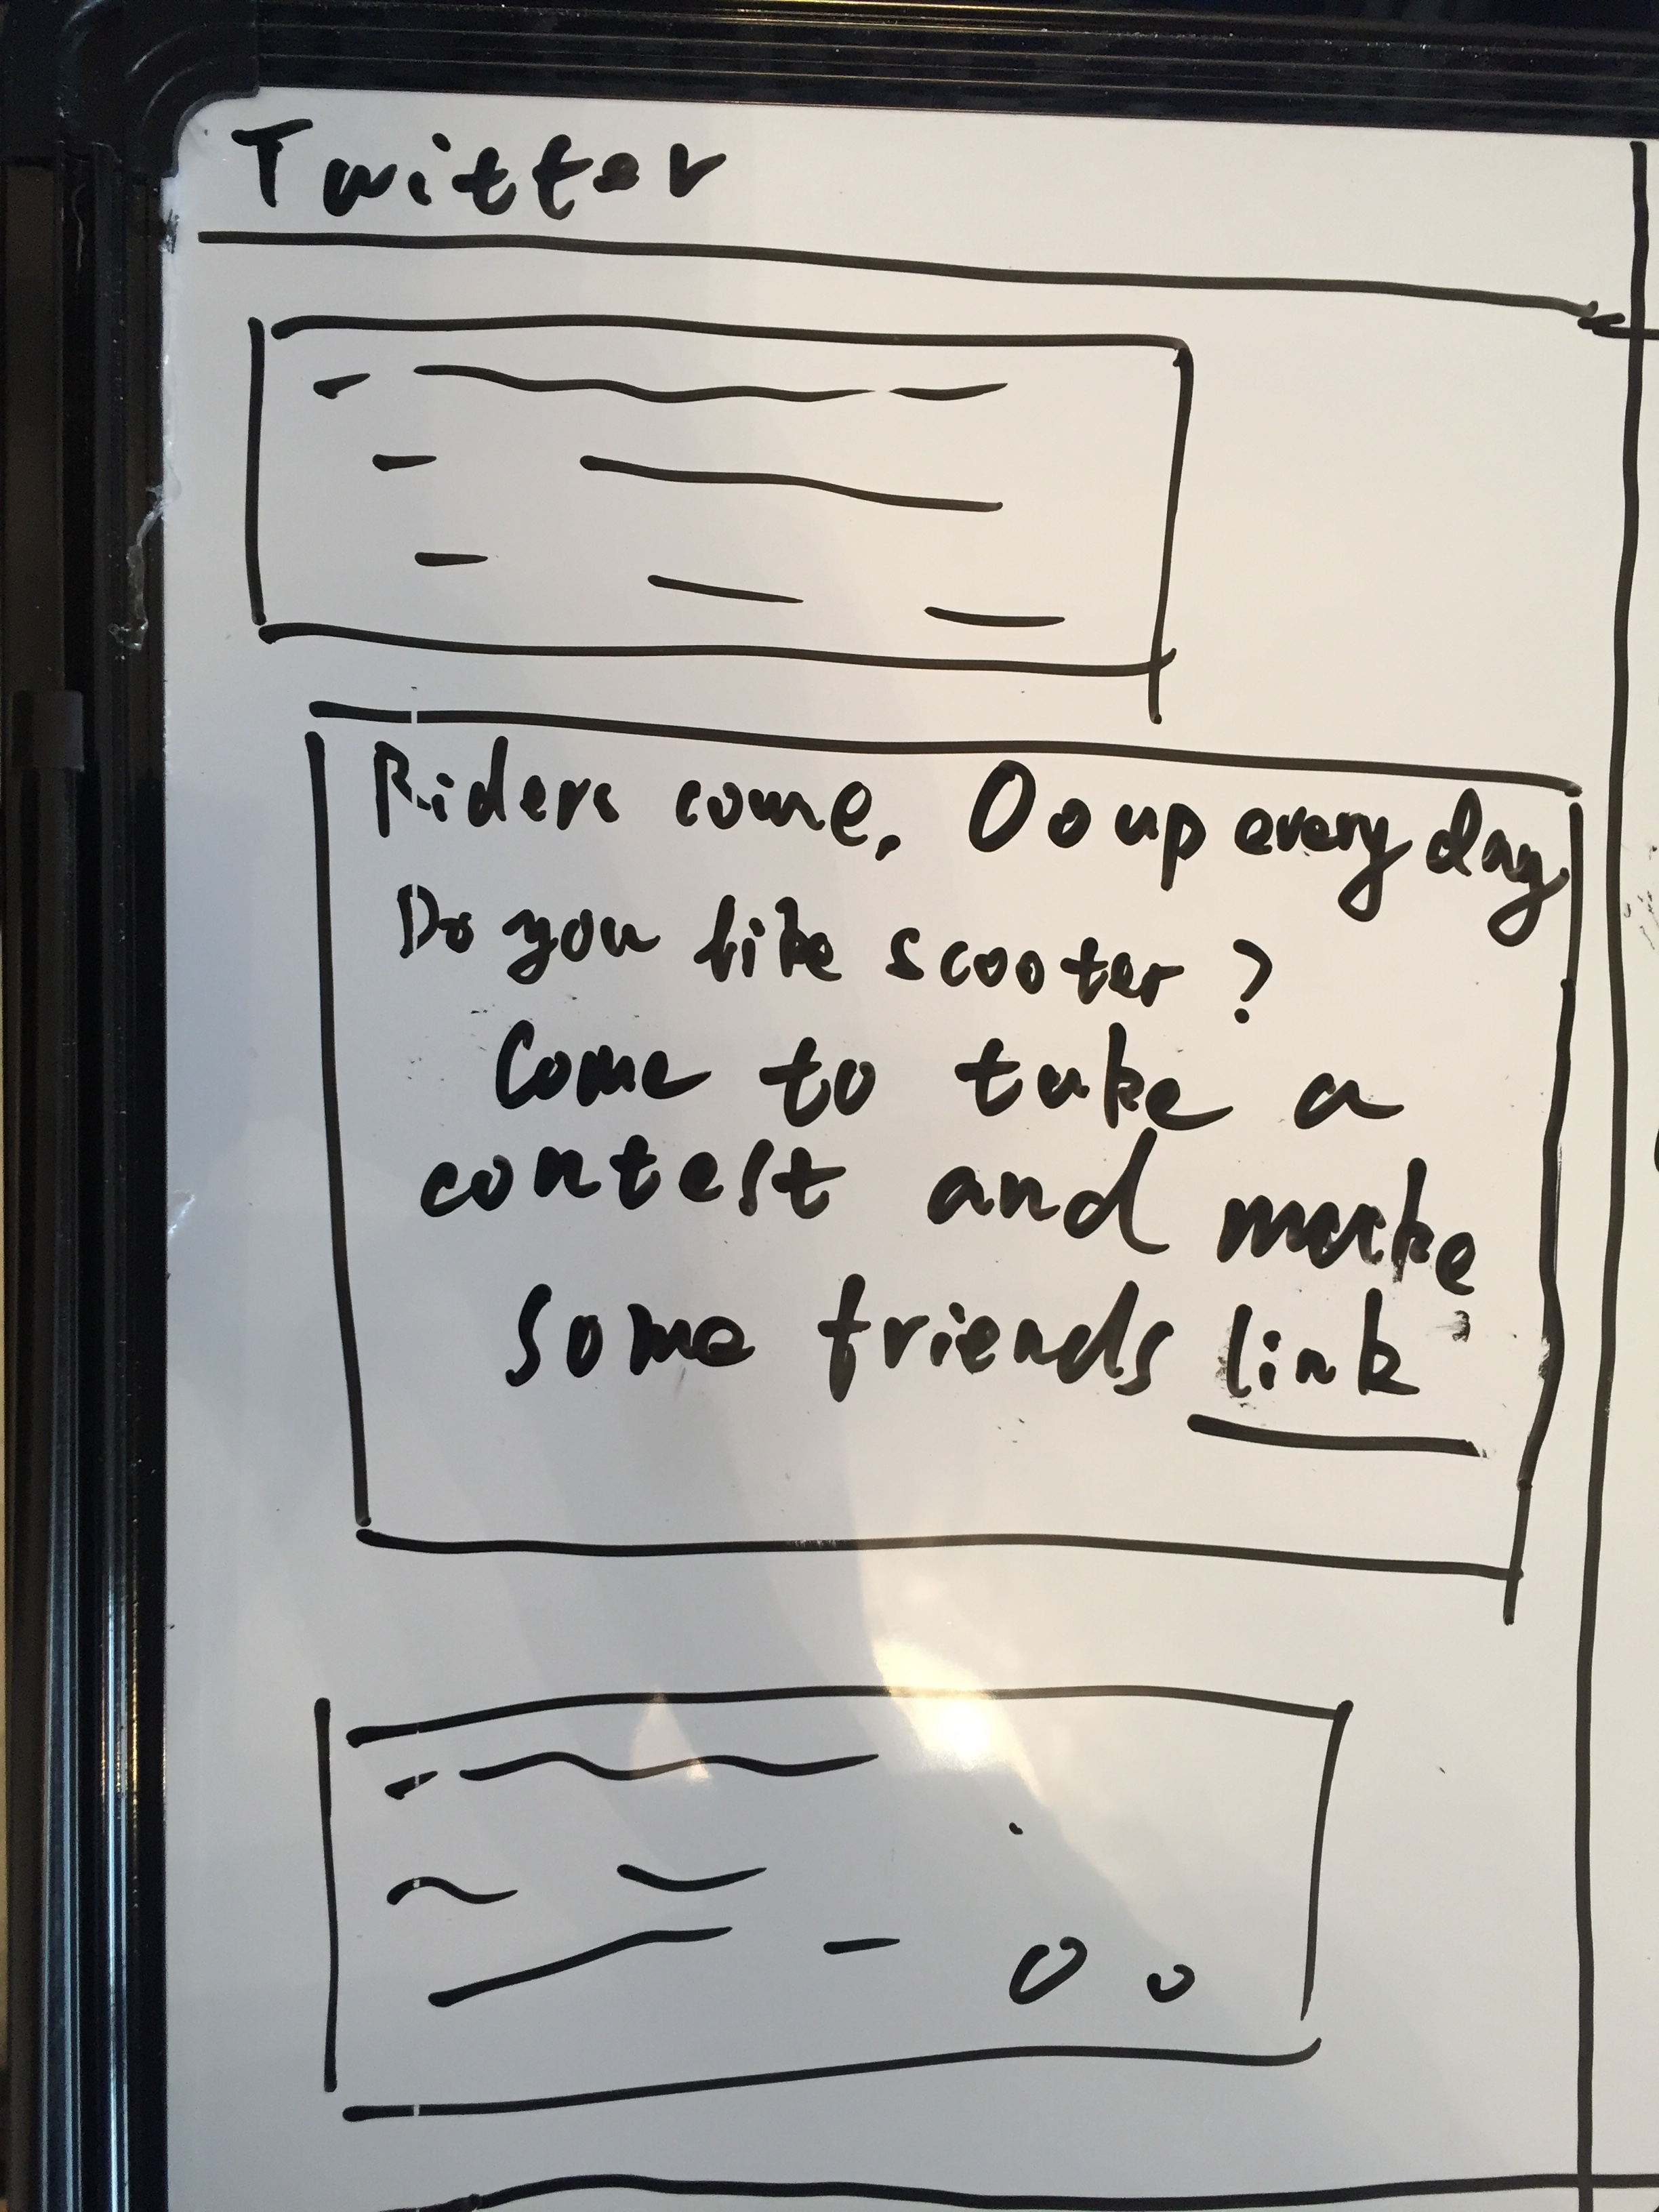 Twitter
Riders come, Oo up every day
Do you like scooter ?
Come to take a
contest and make
some friends link